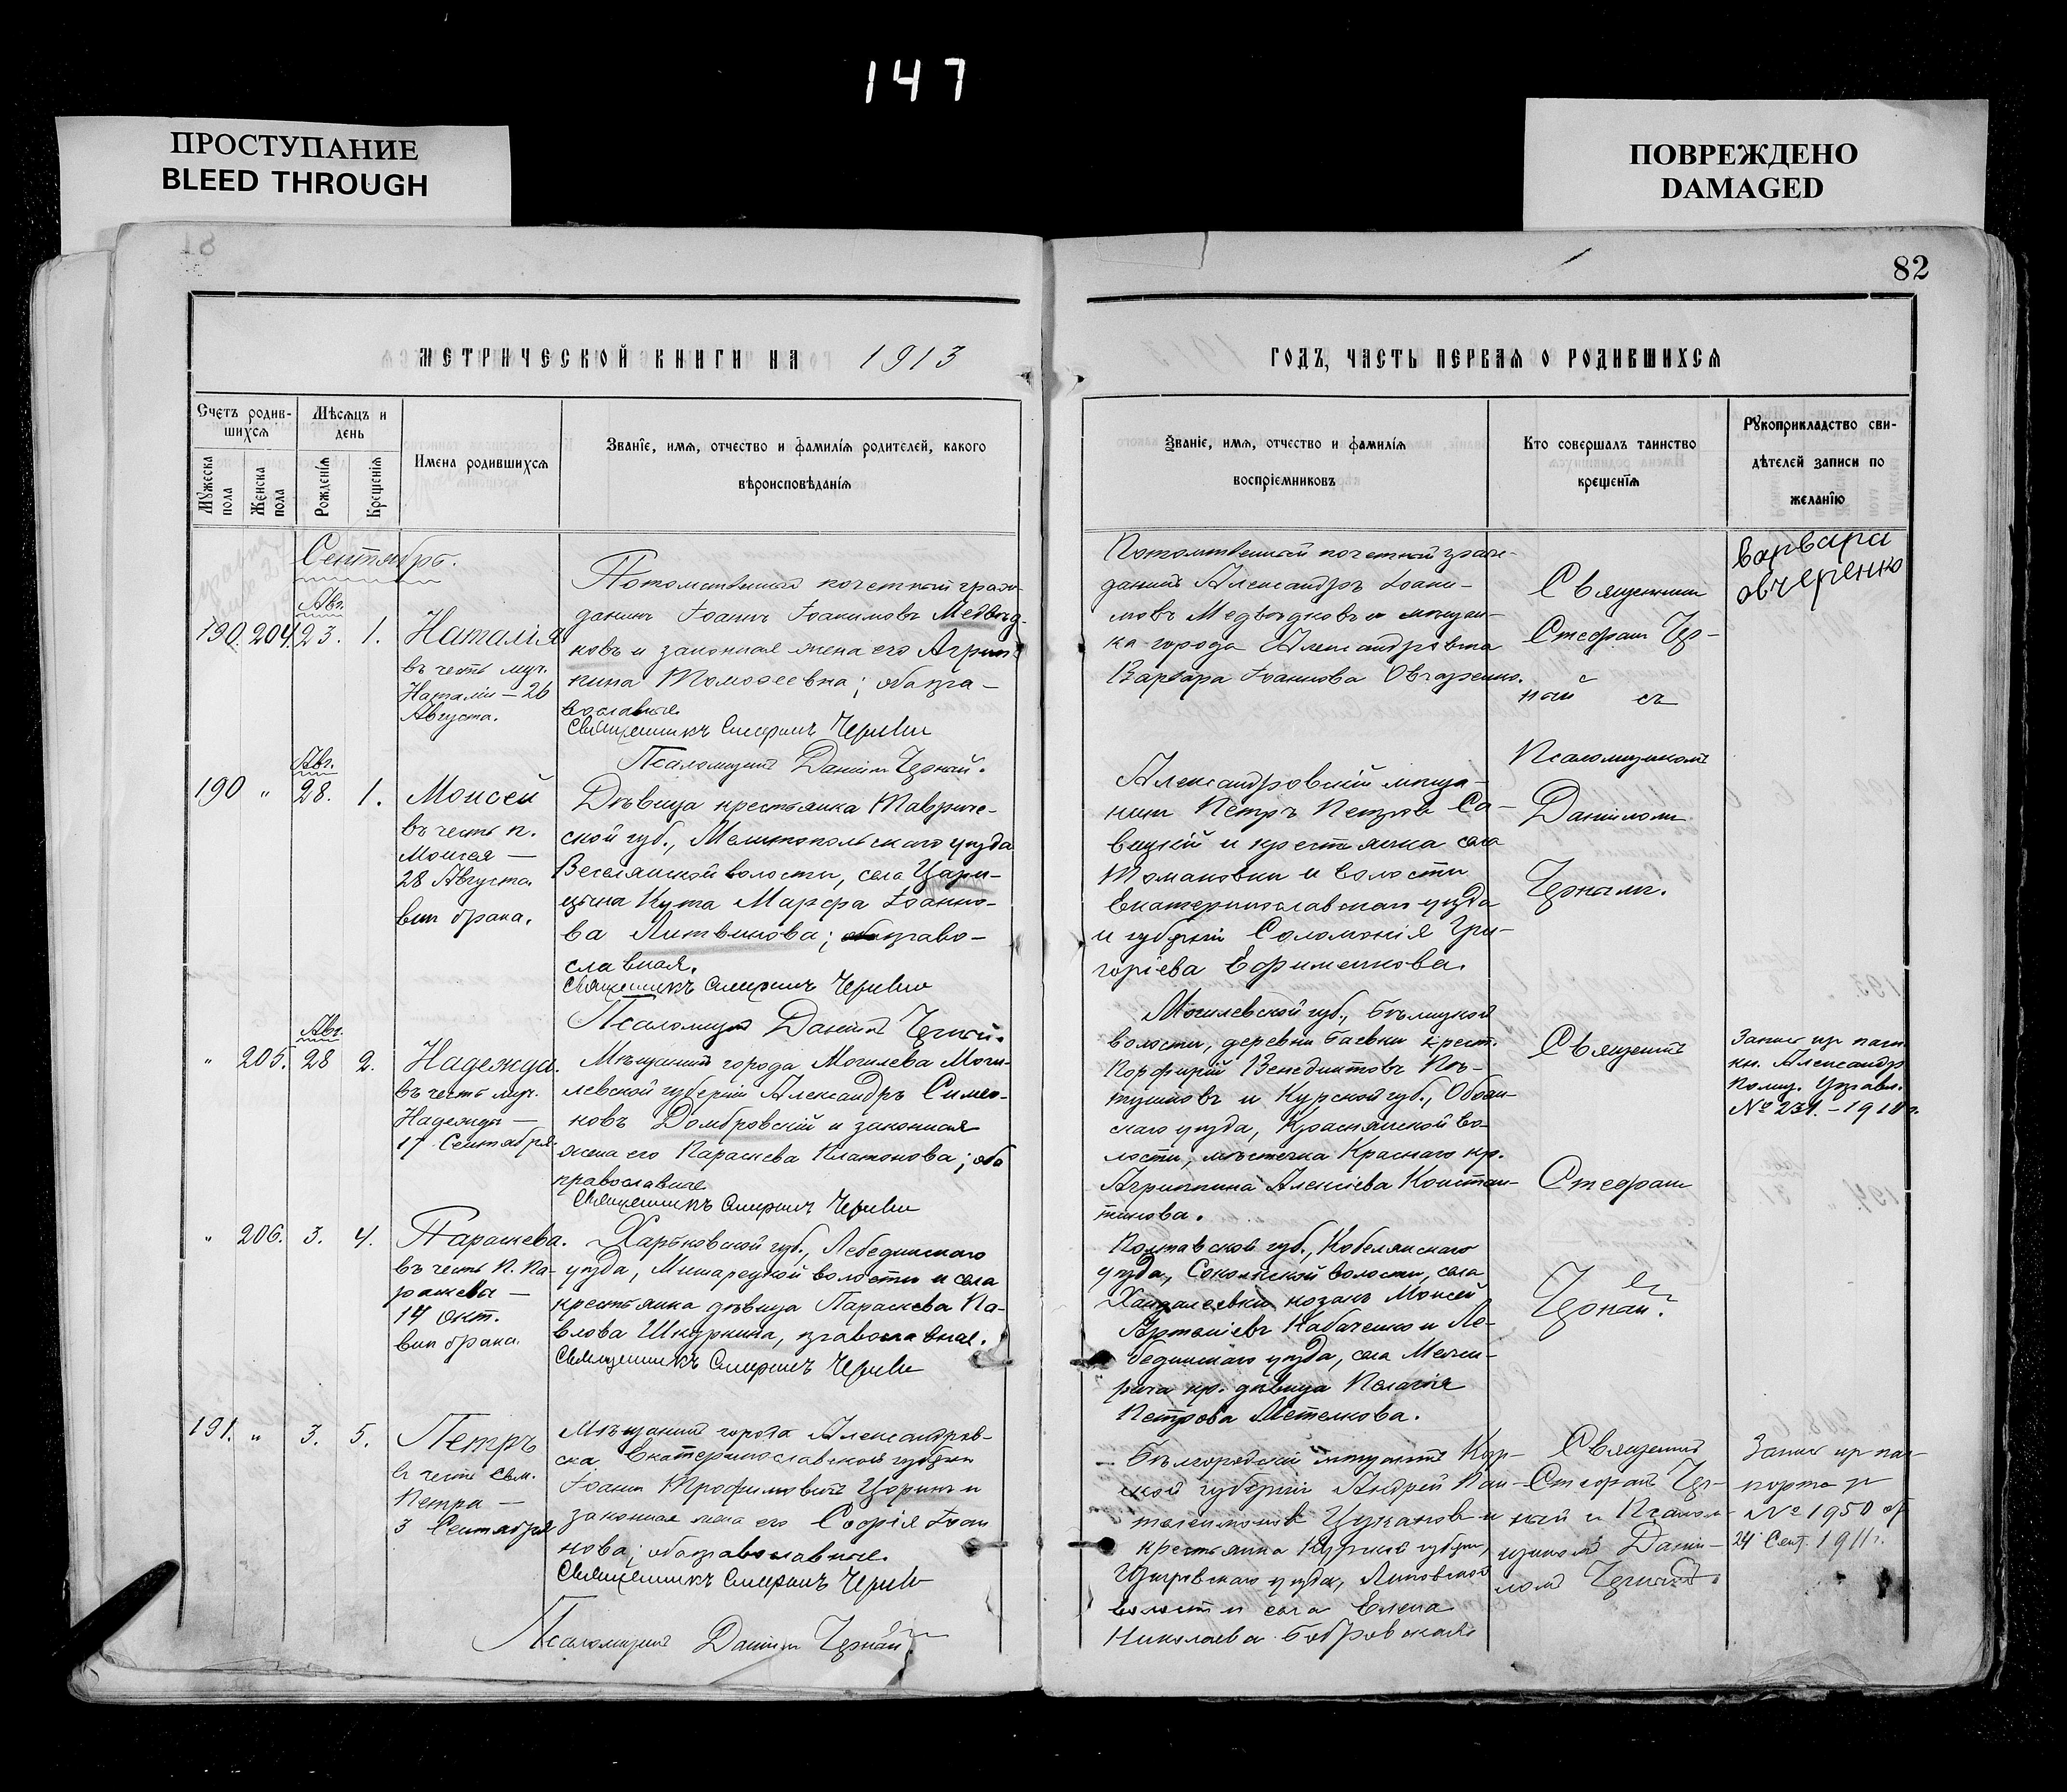 147
ПРОСТУПАНИЕ
BLEED THROUGH
ПОВРЕЖДЕНО
DAMAGED
82
МЕТРИЧЕСКОЙ КНИГИ НА 1913
ГОДЪ, ЧАСТЬ ПЕРВАЯ О РОДИВШИХСЯ
Счетъ родив-
шихся
Мужеска пола
Женска пола
Мѣсяцъ и
день
Рожденія
Крещенія
Имена родившихся
Званіе, имя, отчество и фамилія родителей, какого
вѣроисповѣданія
Званіе, имя, отчество и фамилія
воспріемниковъ
Кто совершалъ таинство
крещенія
Рукоприкладство сви-
дѣтелей записи по
желанію
Сентябрь.
Авг.
190. 204. 23. 1. Наталія
въ честь муч.
Наталіи — 26
Августа.
Потомственный почетный граж-
данинъ Іоаннъ Іоакимовъ Медвѣд-
ковъ и законная жена его Агрип-
пина Тимофеевна; оба пра-
вославные.
Священникъ Стефанъ Черный
Псаломщикъ Даніилъ Черный.
Потомственный почетный граж-
данинъ Александръ Іоаки-
мовъ Медвѣдковъ и мѣщан-
ка города Александровска
Варвара Іоаннова Овчаренко.
Священникъ
Стефанъ Чер-
ный съ
Псаломщикомъ
Даніиломъ
Чернымъ.
Варвара
Овчеренко
Авг.
190 „ 28. 1. Моисей
въ честь п.
Моисея —
28 Августа.
внѣ брака.
Дѣвица крестьянка Тавриче-
ской губ., Мелитопольскаго уѣзда
Веселянской волости, села Цари-
цына Кута Марфа Іоанно-
ва Литвинова; право-
славная.
Священникъ Стефанъ Черный
Псаломщикъ Даніилъ Черный.
Александровскій мѣща-
нинъ Петръ Петровъ Са-
вицкій и крестьянка села
Томаковки и волости
Екатеринославскаго уѣзда
и губерніи Соломонія Гри-
горіева Ефименкова.
Авг.
„ 205. 28 2. Надежда.
въ честь муч.
Надежды —
17 Сентября.
Мѣщанинъ города Могилева Моги-
левской губерніи Александръ Симео-
новъ Домбровскій и законная
жена его Параскева Платонова; оба
православные
Священникъ Стефанъ Черный
Могилевской губ., Бѣлицкой
волости, деревни Баевки крест.
Порфирій Венедиктовъ Пѣ-
тушковъ и Курской губ., Обоян-
скаго уѣзда, Краснянской во-
лости, мѣстечка Краснаго кр.
Агриппина Алексіева Констан-
тинова.
Священникъ
Стефанъ
Черный.
Александр.
Полиц. Управл.
„ 206. 3. 4. Параскева.
въ честь п. Па-
раскевы —
14 Окт.
внѣ брака.
Харьковской губ., Лебединскаго
уѣзда, волости и села
крестьянка дѣвица Параскева Па-
влова Шкуркина, православная.
Священникъ Стефанъ Черный
Полтавской губ., Кобелякскаго
уѣзда, Соколкской волости, села
козакъ Моисей
Кабаченко и Ле-
бединскаго уѣзда, села Межи-
рича кр. дѣвица Пелагія
Петрова Метелкова.
191. „ 3. 5. Петръ
въ честь свм.
Петра —
3 Сентября
Мѣщанинъ города Александров-
ска Екатеринославской губерніи
Іоаннъ Трофимовичъ Царикъ и
законная жена его Софія Іоан
нова; оба православные.
Священникъ Стефанъ Черный
Псаломщикъ Даніилъ Черный.
Бѣлгородскій мѣщанинъ Кур-
ской губерніи Андрей Пан-
телеимоновъ Цукановъ и
крестьянка Курской губерніи,
Щигровскаго уѣзда, Липовской
волости и села Елена
Николаева Бобровская.
Священникъ
Стефанъ Чер-
ный и Псалом-
щикомъ Дані-
ломъ Чернымъ.
Запис. пр. пас-
порта за
№ 1950 от
24 Сент. 1911 г.